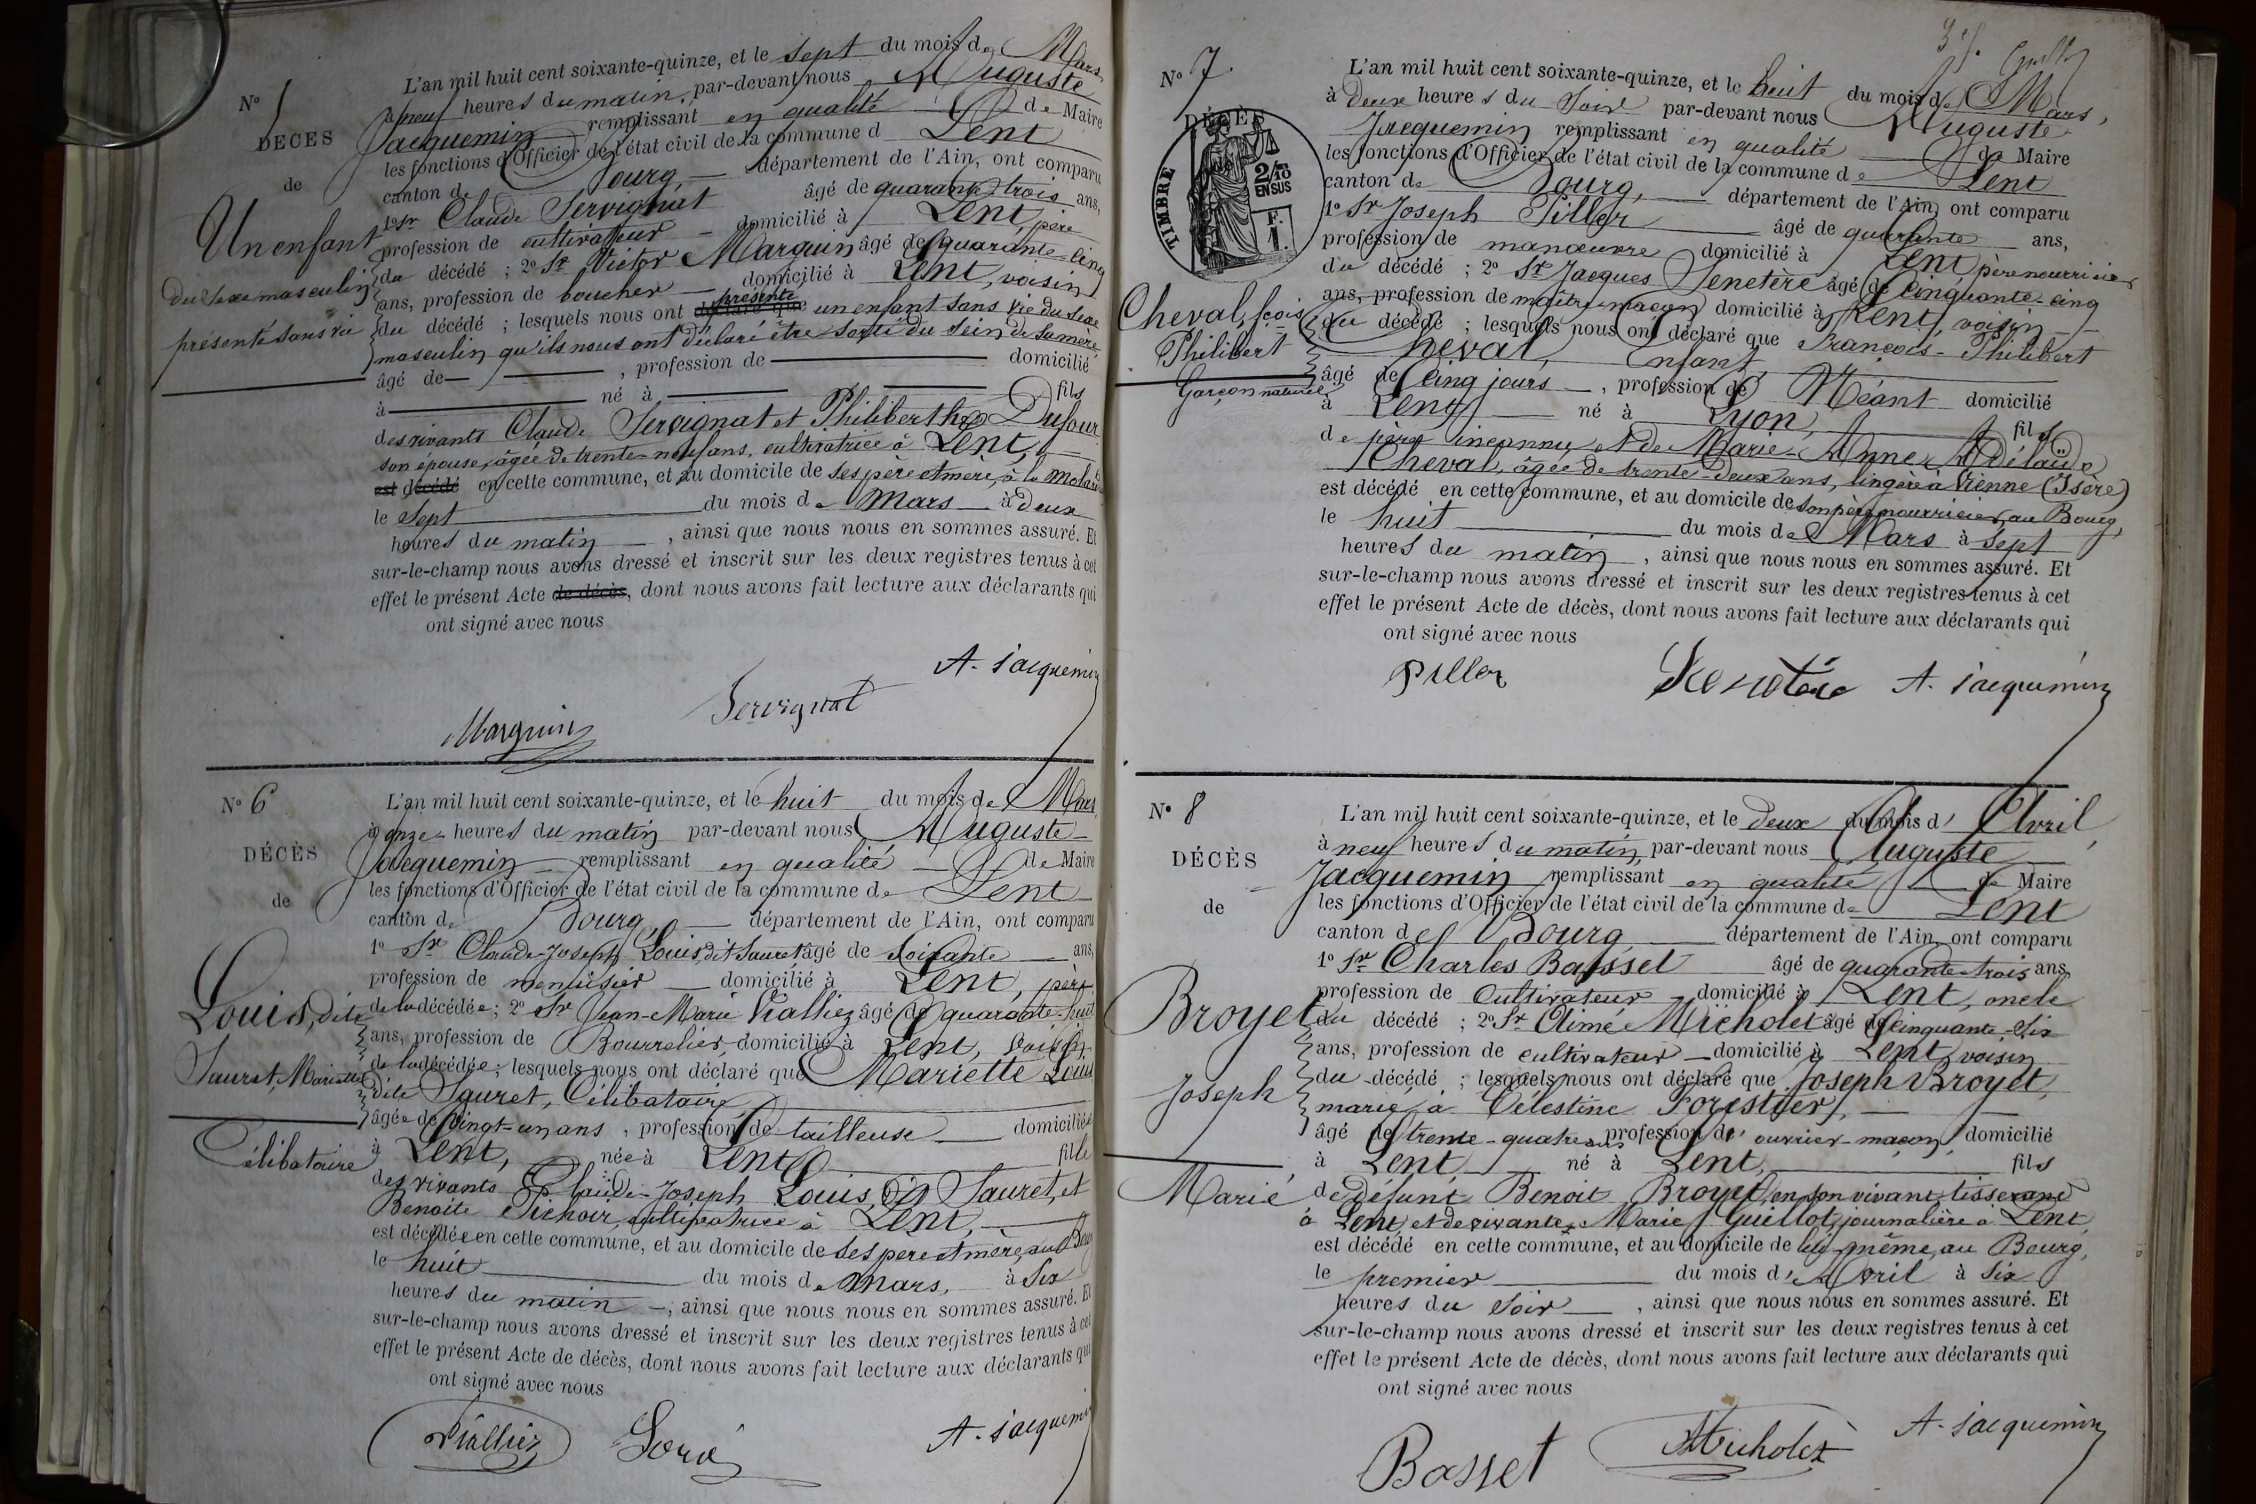 N° 5
DÉCÈS
de
Un enfant
du sexe masculin
présenté sans vie
L'an mil huit cent soixante-quinze, et le sept du mois de Mars,
à neuf heures du matin, par-devant nous Auguste
Jacquemin remplissant en qualité de Maire
les fonctions d'Officier de l'état civil de la commune d Lent
canton de Bourg, département de l'Ain, ont comparu
1° Sr Claude Servignat âgé de quarante-trois ans,
profession de cultivateur domicilié à Lent, père
du décédé ; 2° Sr Victor Marguin âgé de quarante-cinq
ans, profession de boucher domicilié à Lent, voisin
du décédé ; lesquels nous ont déclaré que présenté un enfant sans vie du sexe
masculin qu'ils nous ont déclaré être sorti du sein de sa mère,
âgé de , profession de domicilié
à né à fils
des vivants Claude Servignat et Philiberthe Dufour
son épouse, âgée de trente-neuf ans, cultivatrice à Lent,
est décédé en cette commune, et au domicile de ses père et mère, à la
le sept du mois de Mars à deux
heures du matin , ainsi que nous nous en sommes assuré. Et
sur-le-champ nous avons dressé et inscrit sur les deux registres tenus à cet
effet le présent Acte de décès, dont nous avons fait lecture aux déclarants qui
ont signé avec nous
A. Jacquemin
Servignat
Marguin
N° 6
DÉCÈS
de
Louis, dite
Sauret, Mariette
Célibataire
L'an mil huit cent soixante-quinze, et le huit du mois de Mars
à onze heures du matin par-devant nous Auguste
Jacquemin remplissant en qualité de Maire
les fonctions d'Officier de l'état civil de la commune de Lent
canton de Bourg, département de l'Ain, ont comparu
1° Sr Claude-Joseph Louis, dit Sauret âgé de soixante ans,
profession de menuisier domicilié à Lent, père
de la décédée ; 2° Sr Jean-Marie Vialliez âgé de quarante-huit
ans, profession de Bourrelier, domicilié à Lent, voisin
de la décédée ; lesquels nous ont déclaré que Mariette Louis
dite Sauret, Célibataire
âgée de vingt-un ans , profession de tailleuse domiciliée
à Lent, née à Lent fille
des vivants Claude-Joseph Louis, dit Sauret, et
Benoîte cultivatrice à Lent,
est décédée en cette commune, et au domicile de ses père et mère, au Bourg
le huit du mois de Mars, à Six
heures du matin , ainsi que nous nous en sommes assuré. Et
sur-le-champ nous avons dressé et inscrit sur les deux registres tenus à cet
effet le présent Acte de décès, dont nous avons fait lecture aux déclarants qui
ont signé avec nous
Vialliez
A. Jacquemin
N° 7.
DÉCÈS
TIMBRE
2/10
EN SUS
F.
1.
Cheval, fçois
Philibert
Garçon naturel
L'an mil huit cent soixante-quinze, et le huit du mois de Mars,
à Deux heures du Soir par-devant nous Auguste
Jacquemin remplissant en qualité de Maire
les fonctions d'Officier de l'état civil de la commune de Lent
canton de Bourg, département de l'Ain, ont comparu
1° Sr Joseph Piller âgé de quarante ans,
profession de manœuvre domicilié à Lent père nourricier
du décédé ; 2° Sr Jacques Senetère âgé de Cinquante-cinq
ans, profession de maître-maçon domicilié à Lent, voisin
du décédé ; lesquels nous ont déclaré que François-Philibert
Cheval, Enfant,
âgé de Cinq jours , profession de Néant domicilié
à Lent né à Lyon, fils
de père inconnu, et de Marie-Anne Adélaïde
Cheval, âgée de trente-deux ans, lingère à Vienne (Isère)
est décédé en cette commune, et au domicile de son père nourricier, au Bourg,
le huit du mois de Mars à Sept
heures du matin , ainsi que nous nous en sommes assuré. Et
sur-le-champ nous avons dressé et inscrit sur les deux registres tenus à cet
effet le présent Acte de décès, dont nous avons fait lecture aux déclarants qui
ont signé avec nous
Piller Senetère A. Jacquemin
N° 8
DÉCÈS
de
Broyet
Joseph
Marié
L'an mil huit cent soixante-quinze, et le deux du mois d'Avril
à neuf heures du matin, par-devant nous Auguste
Jacquemin remplissant en qualité de Maire
les fonctions d'Officier de l'état civil de la commune de Lent
canton de Bourg département de l'Ain, ont comparu
1° Sr Charles Basset âgé de quarante-trois ans,
profession de Cultivateur domicilié à Lent, oncle
du décédé ; 2° Sr Aimé Micholet âgé de Cinquante-Six
ans, profession de cultivateur domicilié à Lent, voisin
du décédé ; lesquels nous ont déclaré que Joseph Broyet,
marié à Célestine Forestier,
âgé de trente-quatre ans profession d'ouvrier-maçon, domicilié
à Lent né à Lent, fils
de défunt Benoit Broyet, en son vivant tisserand
à Lent, et de vivante Marie Guillot, journalière à Lent,
est décédé en cette commune, et au domicile de lui-même, au Bourg,
le premier du mois d'Avril à Six
heures du Soir , ainsi que nous nous en sommes assuré. Et
sur-le-champ nous avons dressé et inscrit sur les deux registres tenus à cet
effet le présent Acte de décès, dont nous avons fait lecture aux déclarants qui
ont signé avec nous
Basset Micholet A. Jacquemin